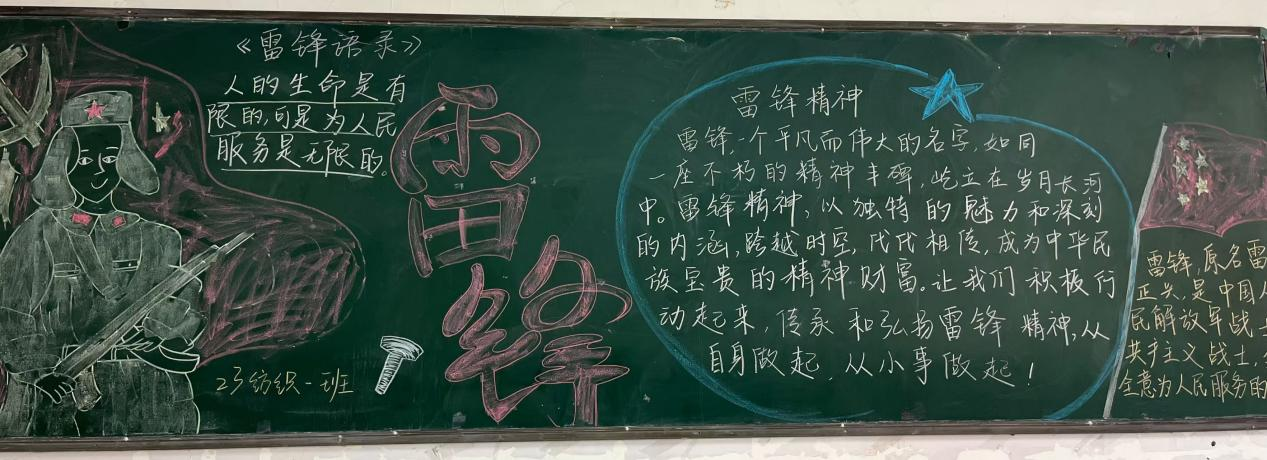 《雷锋语录》
人的生命是有
限的,可是为人民
服务是无限的。
23纺织一班
雷锋
雷锋精神
雷锋,一个平凡而伟大的名字,如同
一座不朽的精神丰碑,屹立在岁月长河
中。雷锋精神,以独特的魅力和深刻
的内涵,跨越时空,代代相传,成为中华民
族宝贵的精神财富。让我们积极行
动起来,传承和弘扬雷锋精神,从
自身做起,从小事做起!
雷锋,原名雷
正兴,是中国人
民解放军战士
共产主义战士,
全意为人民服务的